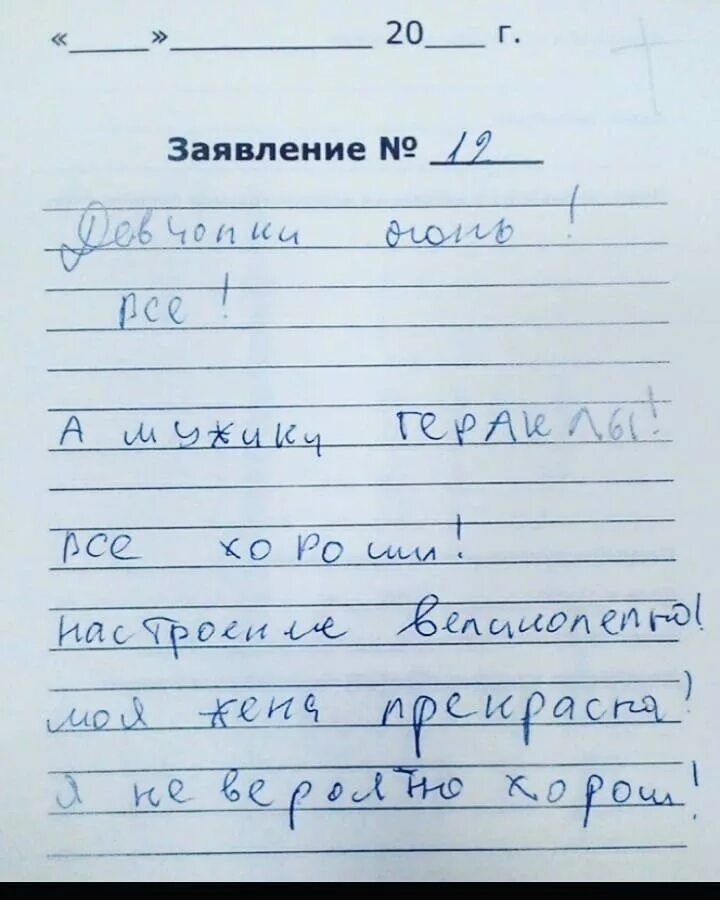 «____»____________ 20___ г.
Заявление № 12
Девчонки огонь!
все!
А мужики ГЕРАКЛЫ!
все хороши!
настроение великолепно!
моя жена прекрасна!
я не вероятно хорош!